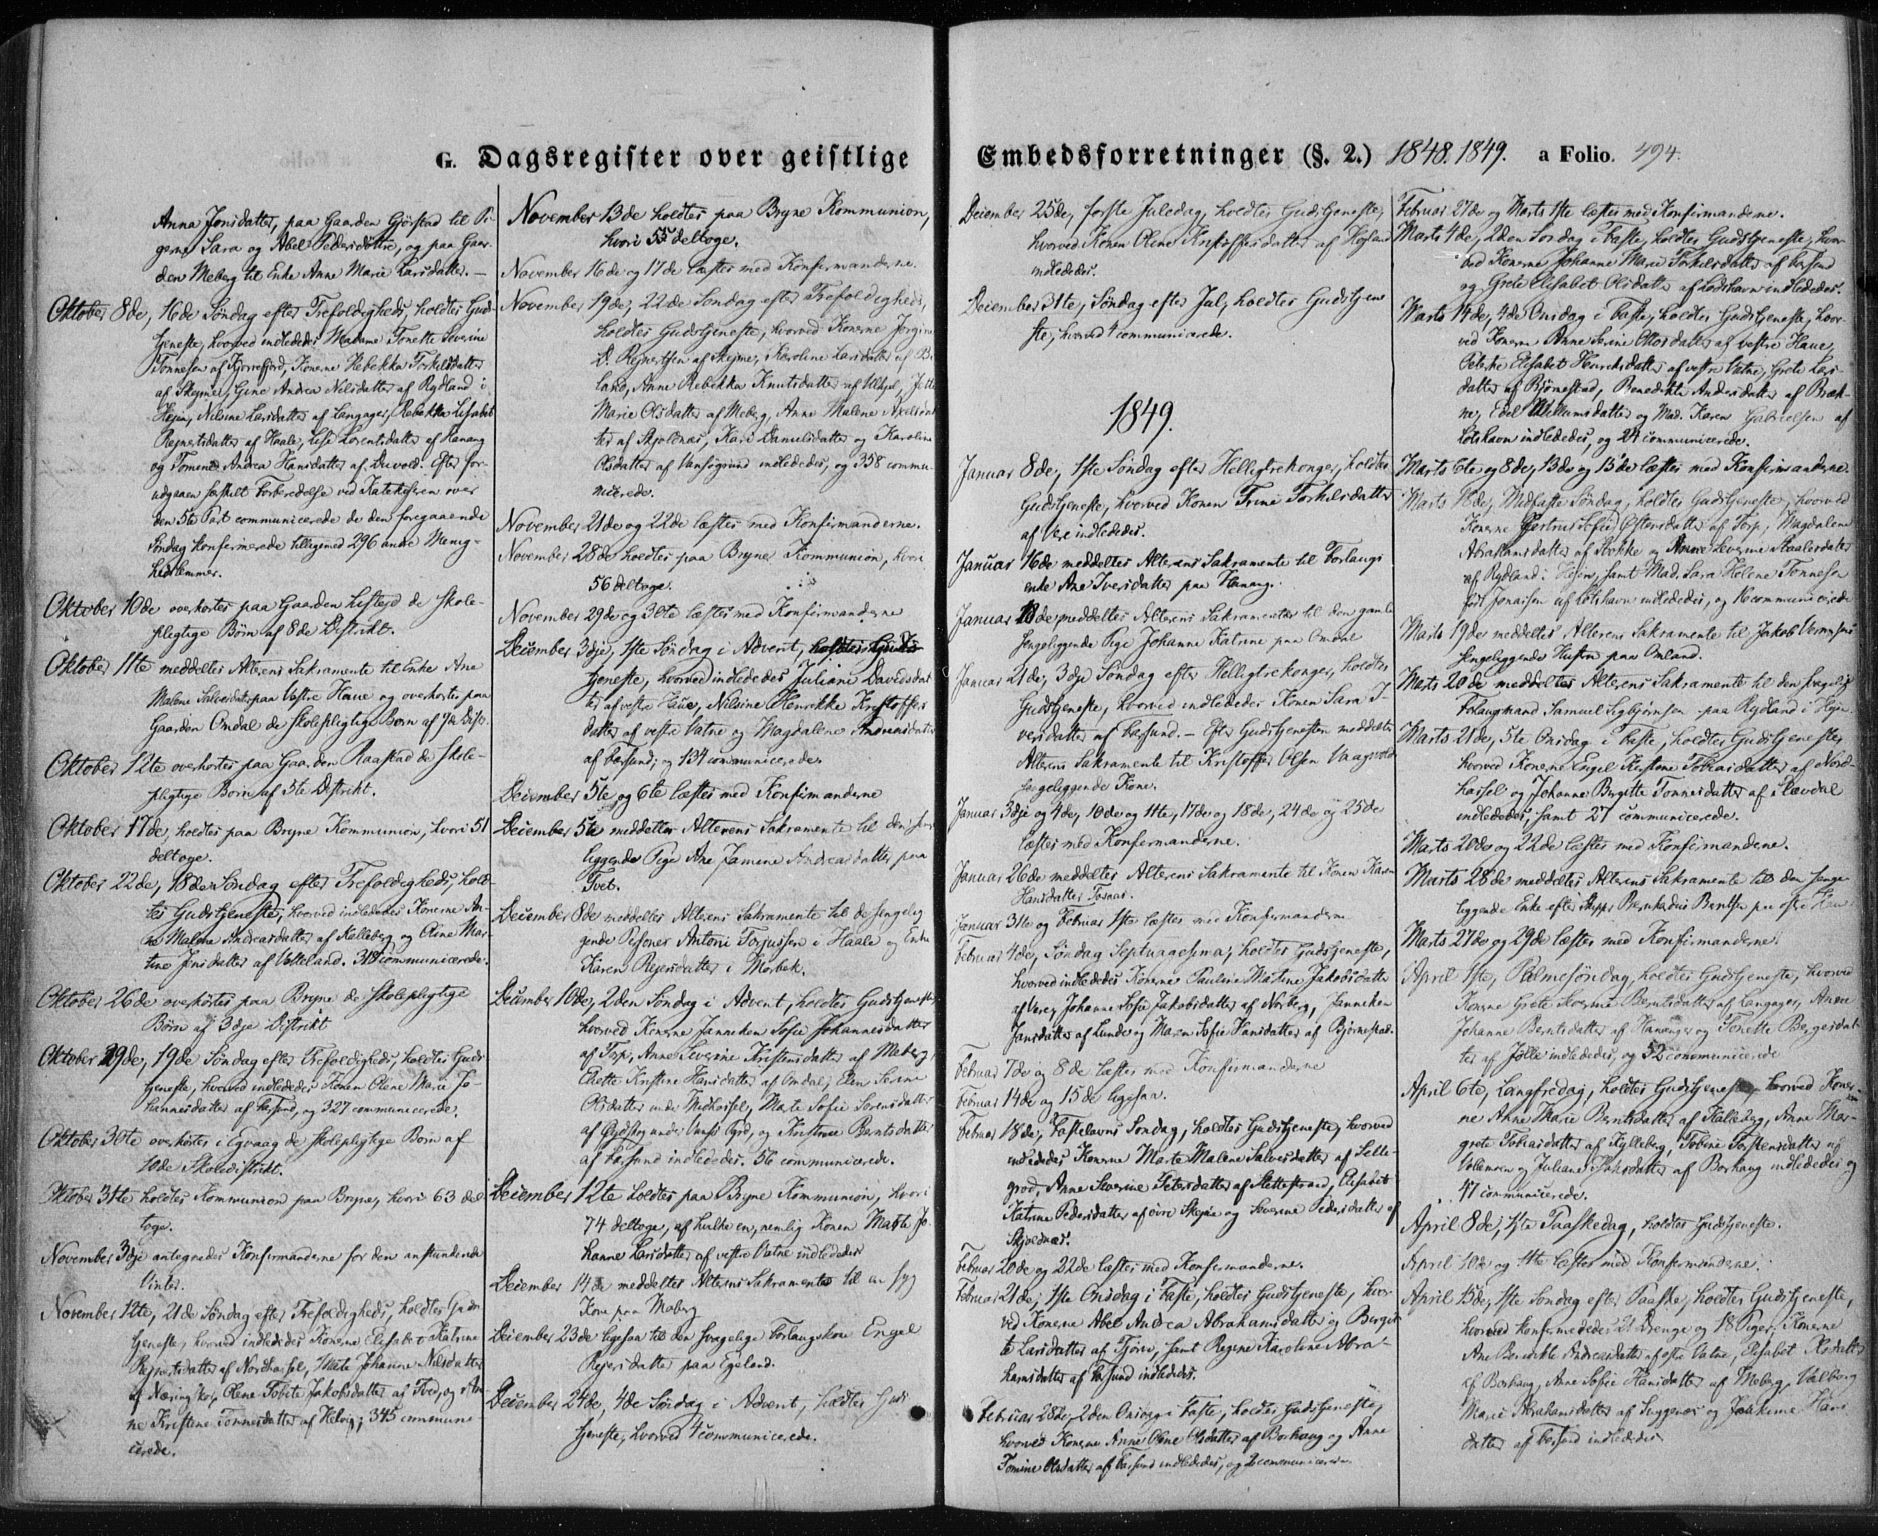 G. Dagsregister over geistlige
Anna Jonsdatter, paa Gaarden Gjørstad til Pi-
gerne Sara og Abel Pedersdøttre, og paa Gaar-
den Meberg til Enke Anne Marie Larsdatter. —
Oktober 8de, 16de Søndag efter Trefoldigheds, holdtes Gud-
tjeneste, hvorved indlededes Madame Tonette Severine
Tønnesen af Kjørrefjord, Konerne Rebekka Torkelsdatter
af Skejme, Gine Andrea Nilsdatter af Rydland i
Hejm, Nilsine Larsdatter af Langager, Rebekka Elisabet
Rejnertsdatter af Haale, Lise Lorentsdatter af Hanang
og Tomine Andrea Hansdatter af. Efter for-
udgaaen særskilt Forberedelse ved Katekiseren over
den 5te Part communicerede de den foregaaende
Søndag konfirmerede tilligemed 296 andre Menig-
hedslemmer.
Oktober 10de overhørtes paa Gaarden Listeid de skole-
pligtige Børn af 8de Distrikt.
Oktober 11te meddeltes Alterens Sakramente til Enke Ane
Malene Salvesdatter paa Vestre Haue og overhørtes paa
Gaarden Omdal de skolepligtige Børn af 7de Distr.
Oktober 12te overhørtes paa Gaarden Raastad de skole-
pligtige Børn af 5te Distrikt.
Oktober 17de, holdtes paa Bryne Kommunion, hvori 51
deltoge.
Oktober 22de, 18de Søndag efter Trefoldigheds, hold-
tes Gudstjeneste, hvorved indlededes Konerne An-
ne Malene Andreasdatter af Kalleberg og Oline Mar-
tine Jensdatter af Vatteland. 318 communicerede.
Oktober 26de overhørtes paa Bryne de skolepligtige
Børn af 3dje Distrikt
Oktober 29de, 19de Søndag efter Trefoldigheds, holdtes Guds-
tjeneste, hvorved indlededes Konen Olene Marie Jo-
hannesdatter af Farsund, og 327 communicerede.
Oktober 30te overhørtes i Egvaag de skolepligtige Børn af
10de Skoledistrikt.
Oktober 31te holdtes Kommunion paa Bryne, hvori 63 del-
toge.
November 3dje antegnedes Konfirmanderne for den anstundende
Vinter.
November 12te, 21de Søndag efter Trefoldigheds, holdtes Guds-
tjeneste, hvorved indlededes Konerne Elisabet Katrine
Rejnertsdatter af Nordhassel, Mate Johanne Nilsdatter
af Næring, Olene Tobite Jakobsdatter af Tved, og An-
ne Kristine Tønnesdatter af Kelvig; 345 communi-
cerede.
November 13de holdtes paa Bryne Kommunion,
hvori 55 deltoge.
November 16de og 17de læstes med Konfirmanderne.
November 19de, 22de Søndag efter Trefoldigheds,
holdtes Gudstjeneste, hvorved Konerne Jørgine
D. Rejnertsen af Skejme, Karoline Larsdatter af Be-
land, Anne Rebekka Knutsdatter af Ulthal, Jette
Marie Olsdatter af Meberg, Anne Malene Axelsdat-
ter af Skjolnæs, Kari Danielsdatter og Karoline
Olsdatter af Vansøgrund indlededes, og 358 commu-
nicerede.
November 21de og 22de læstes med Konfirmanderne.
November 28de holdtes paa Bryne Kommunion, hvori
56 deltoge.
November 29de og 30te læstes med Konfirmanderne
December 3dje, 1ste Søndag i Advent, holdtes Guds-
tjeneste, hvorved indlededes Juliane Davidsdat-
ter af vestre Haue, Nilsine Henrikke Kristoffers-
datter af vestre Vatne og Magdalene Andreasdatter
af Farsund; og 134 communicerede.
December 5te og 6te læstes med Konfirmanderne
December 5te meddeltes Alterens Sakramente til den senge-
liggende Pige Ane Jamine Andreasdatter paa
Tvet.
December 8de meddeltes Alterens Sakramente til de sengelig-
gende Personer Antoni Torjussen i Haale og Enke
Karen Rejersdatter i Mørbek.
December 10de, 2den Søndag i Advent, holdtes Gudstjeneste,
hvorved Konerne Janneken Sofie Johannesdatter
af Torp, Anne Severine Kristensdatter af Meberg,
Enette Kristine Hansdatter af Omdal, Elen Serine
Olsdatter under Midhassel, Marte Sofie Sørensdatter
af under Vansø Pgrd, og Kristense Berntsdatter
af Farsund indlededes. 56 communicerede.
December 12te holdtes paa Bryne Kommunion, hvori
74 deltoge, af hvilke en, nemlig Konen Marte Jo-
hanne Larsdatter af vestre Vatne indlededes
December 14de meddeltes Alterens Sakramente til en syg
Kone paa Maberg
December 23de ligesaa til den svagelige Forlangskone Engel
Rejersdatter paa Egeland.
December 24de, 4de Søndag i Advent, holdtes Guds-
tjeneste, hvorved 4 communicerede.
Embedsforretninger (§. 2.) 1848. 1849. a Folio. 494.
December 25de, første Juledag, holdtes Gudstjeneste,
hvorved Konen Oline Kristoffersdatter af Højland
indlededes.
December 31te, Søndag efter Jul, holdtes Gudstjene-
ste, hvorved 4 communicerede.
1849.
Januar 8de, 1ste Søndag efter Helligtrekonger, holdtes
Gudstjeneste, hvorved Konen Trine Torkelsdatter
af Vere indlededes.
Januar 16de meddeltes Alterens Sakramente til Forlangs-
enke Ane Iversdatter paa Hanang.
Januar 18de meddeltes Alterens Sakramente til den gamle
sengeliggende Pige Johanne Katrine paa Omdal
Januar 21de, 3dje Søndag efter Helligtrekonger, holdtes
Gudstjeneste, hvorved indlededes Konen Sara I-
versdatter af Farsund. — Efter Gudstjenesten meddeltes
Alterens Sakramente til Kristoffer Olsen Vaagsvolds
sengeliggende Kone.
Januar 3dje og 4de, 10de og 11te, 17de og 18de, 24de og 25de
læstes med Konfirmanderne.
Januar 26de meddeltes Alterens Sakramente til Konen Karen
Hansdatter Fosnæs.
Januar 31te og Februar 1ste læstes med Konfirmanderne
Februar 4de, Søndag Septuagesima, holdtes Gudstjeneste,
hvorved indlededes Konerne Pauline Matine Jakobsdatter
af Vere, Johanne Sofie Jakobsdatter af Norberg, Janneken
Jansdatter af Lunde og Maren Sofie Hansdatter af Bjørnestad.
Februar 7de og 8de læstes med Konfirmanderne
Februar 14de og 15de ligesaa.
Februar 18de, Fastelavns Søndag, holdtes Gudstjeneste, hvorved
indlededes Konerne Marte Malene Salvesdatter afSelle-
grod, Anne Severine Petersdatter af Slettestrand, Elisabet
Katrine Pedersdatter af øvre Skejme og Severine Pedersdatter af
Skjoldnæs.
Februar 20de og 22de læstes med Konfirmanderne.
Februar 21de, 1ste Onsdag i Faste, holdtes Gudstjeneste, hvor-
ved Konerne Abel Andrea Abrahamsdatter og Berget-
te Larsdatter af Tjørve, samt Regine Karoline Abra-
hamsdatter af Farsund indlededes.
Februar 28de, 2den Onsdag i Faste, holdtes Gudstjeneste,
hvorved Konerne Anne Oline Olsdatter af Borhaug og Anne
Tomine Olsdatter af Farsund indlededes, og 2 communicerede
Februar 27de og Marts 1ste læstes med Konfirmanderne.
Marts 4de, 2den Søndag i Faste, holdtes Gudstjeneste, hvor-
ved Konerne Johanne Marie Torkelsdatter af Farsund
og Grete Elisabet Olsdatter af Lotshavn indlededes.
Marts 14de, 4de Onsdag i Faste, holdtes Gudstjeneste, hvor-
ved Konerne Anne Serine Ottosdatter af vestre Haue,
Elisabet Henriksdatter af vestre Vatne, Grete Lars-
datter af Bjørnestad, Benedikte Andersdatter af Bræk-
ne, Edel Willumsdatter og Mad. Karen Gabrielsen af
Lotshavn indlededes, og 24 communicerede.
Marts 6te og 8de, 13de og 15de læstes med Konfirmanderne.
Marts 18de, Midfaste Søndag, holdtes Gudstjeneste, hvorved
Konerne Sofie Østensdatter af Torp, Magdalene
Abrahamsdatter af og Anne Severine Staalesdatter
af Rydland i Hejm, samt Mad. Sara Helene Tønnesen
født Jonassen af Lotshavn indlededes, og 16 communicerede
Marts 19de meddeltes Alterens Sakramente til Jakob
sengeliggende Hustru paa Omland.
Marts 20de meddeltes Alterens Sakramente til den svagelige
Forlangsmand Samuel Sigbjørnsen paa Rydland i Hejm.
Marts 21de, 5te Onsdag i Faste, holdtes Gudstjeneste,
hvorved Konerne Engel Kirstine Tobiasdatter af Nord-
hassel og Johanne Birgitte Tønnesdatter af
indlededes, samt 27 communicerede.
Marts 20de og 22de læstes med Konfirmanderne.
Marts 28de meddeltes Alterens Sakramente til den senge-
liggende Enke efter Skipper Berntsen paa østre Haue
Marts 27de og 29de læstes med Konfirmanderne.
April 1ste, Palmesøndag, holdtes Gudstjeneste, hvorved
Konerne Grete Severine Berntsdatter af Langager, Anne
Johanne Berntsdatter af Hananger og Tonette Bergesdat-
ter af Jølle indlededes, og 52 communicerede
April 6te, Langfredag, holdtes Gudstjeneste hvorved Koner-
ne Anne Marie Berntsdatter af Kalleberg, Anne Mar-
grete Tobiasdatter af Kjelleberg, Tobine Torstensdatter af
og Juliane Isaksdatter af Borhaug indlededes og
47 communicerede.
April 8de, 1ste Paaskedag, holdtes Gudstjeneste.
April 10de og 11te læstes med Konfirmanderne.
April 15de, 1ste Søndag efter Paaske, holdtes Gudstjeneste,
hvorved konfirmeredes 21 Drenge og 18 Piger; Konerne
Ane Benedikte Andreasdatter af østre Vatne, Elisabet Olsdatter
af Borhaug, Anne Sofie Hansdatter af Meberg, Valborg
Marie Abrahamsdatter af og Joakime Hans-
datter af Farsund indlededes